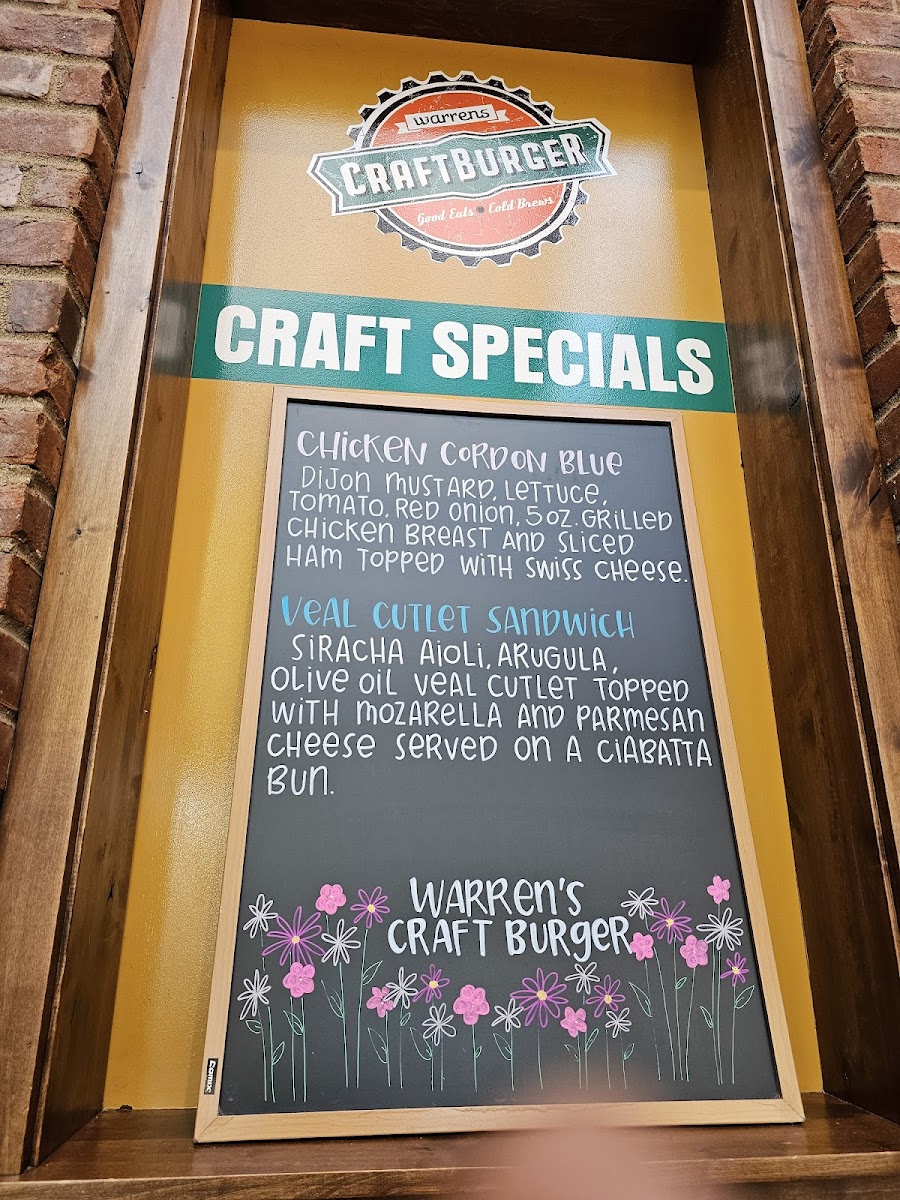 warrens
CRAFTBURGER
Good Eats • Cold Brews
CRAFT SPECIALS
CHICKEN CORDON BLUE
DIJON MUSTARD, LETTUCE,
TOMATO, RED ONION, 5 OZ. GRILLED
CHICKEN BREAST AND SLICED
HAM TOPPED WITH SWISS CHEESE.
VEAL CUTLET SANDWICH
SIRACHA AIOLI, ARUGULA,
OLIVE OIL VEAL CUTLET TOPPED
WITH MOZARELLA AND PARMESAN
CHEESE SERVED ON A CIABATTA
BUN.
WARREN'S
CRAFT BURGER